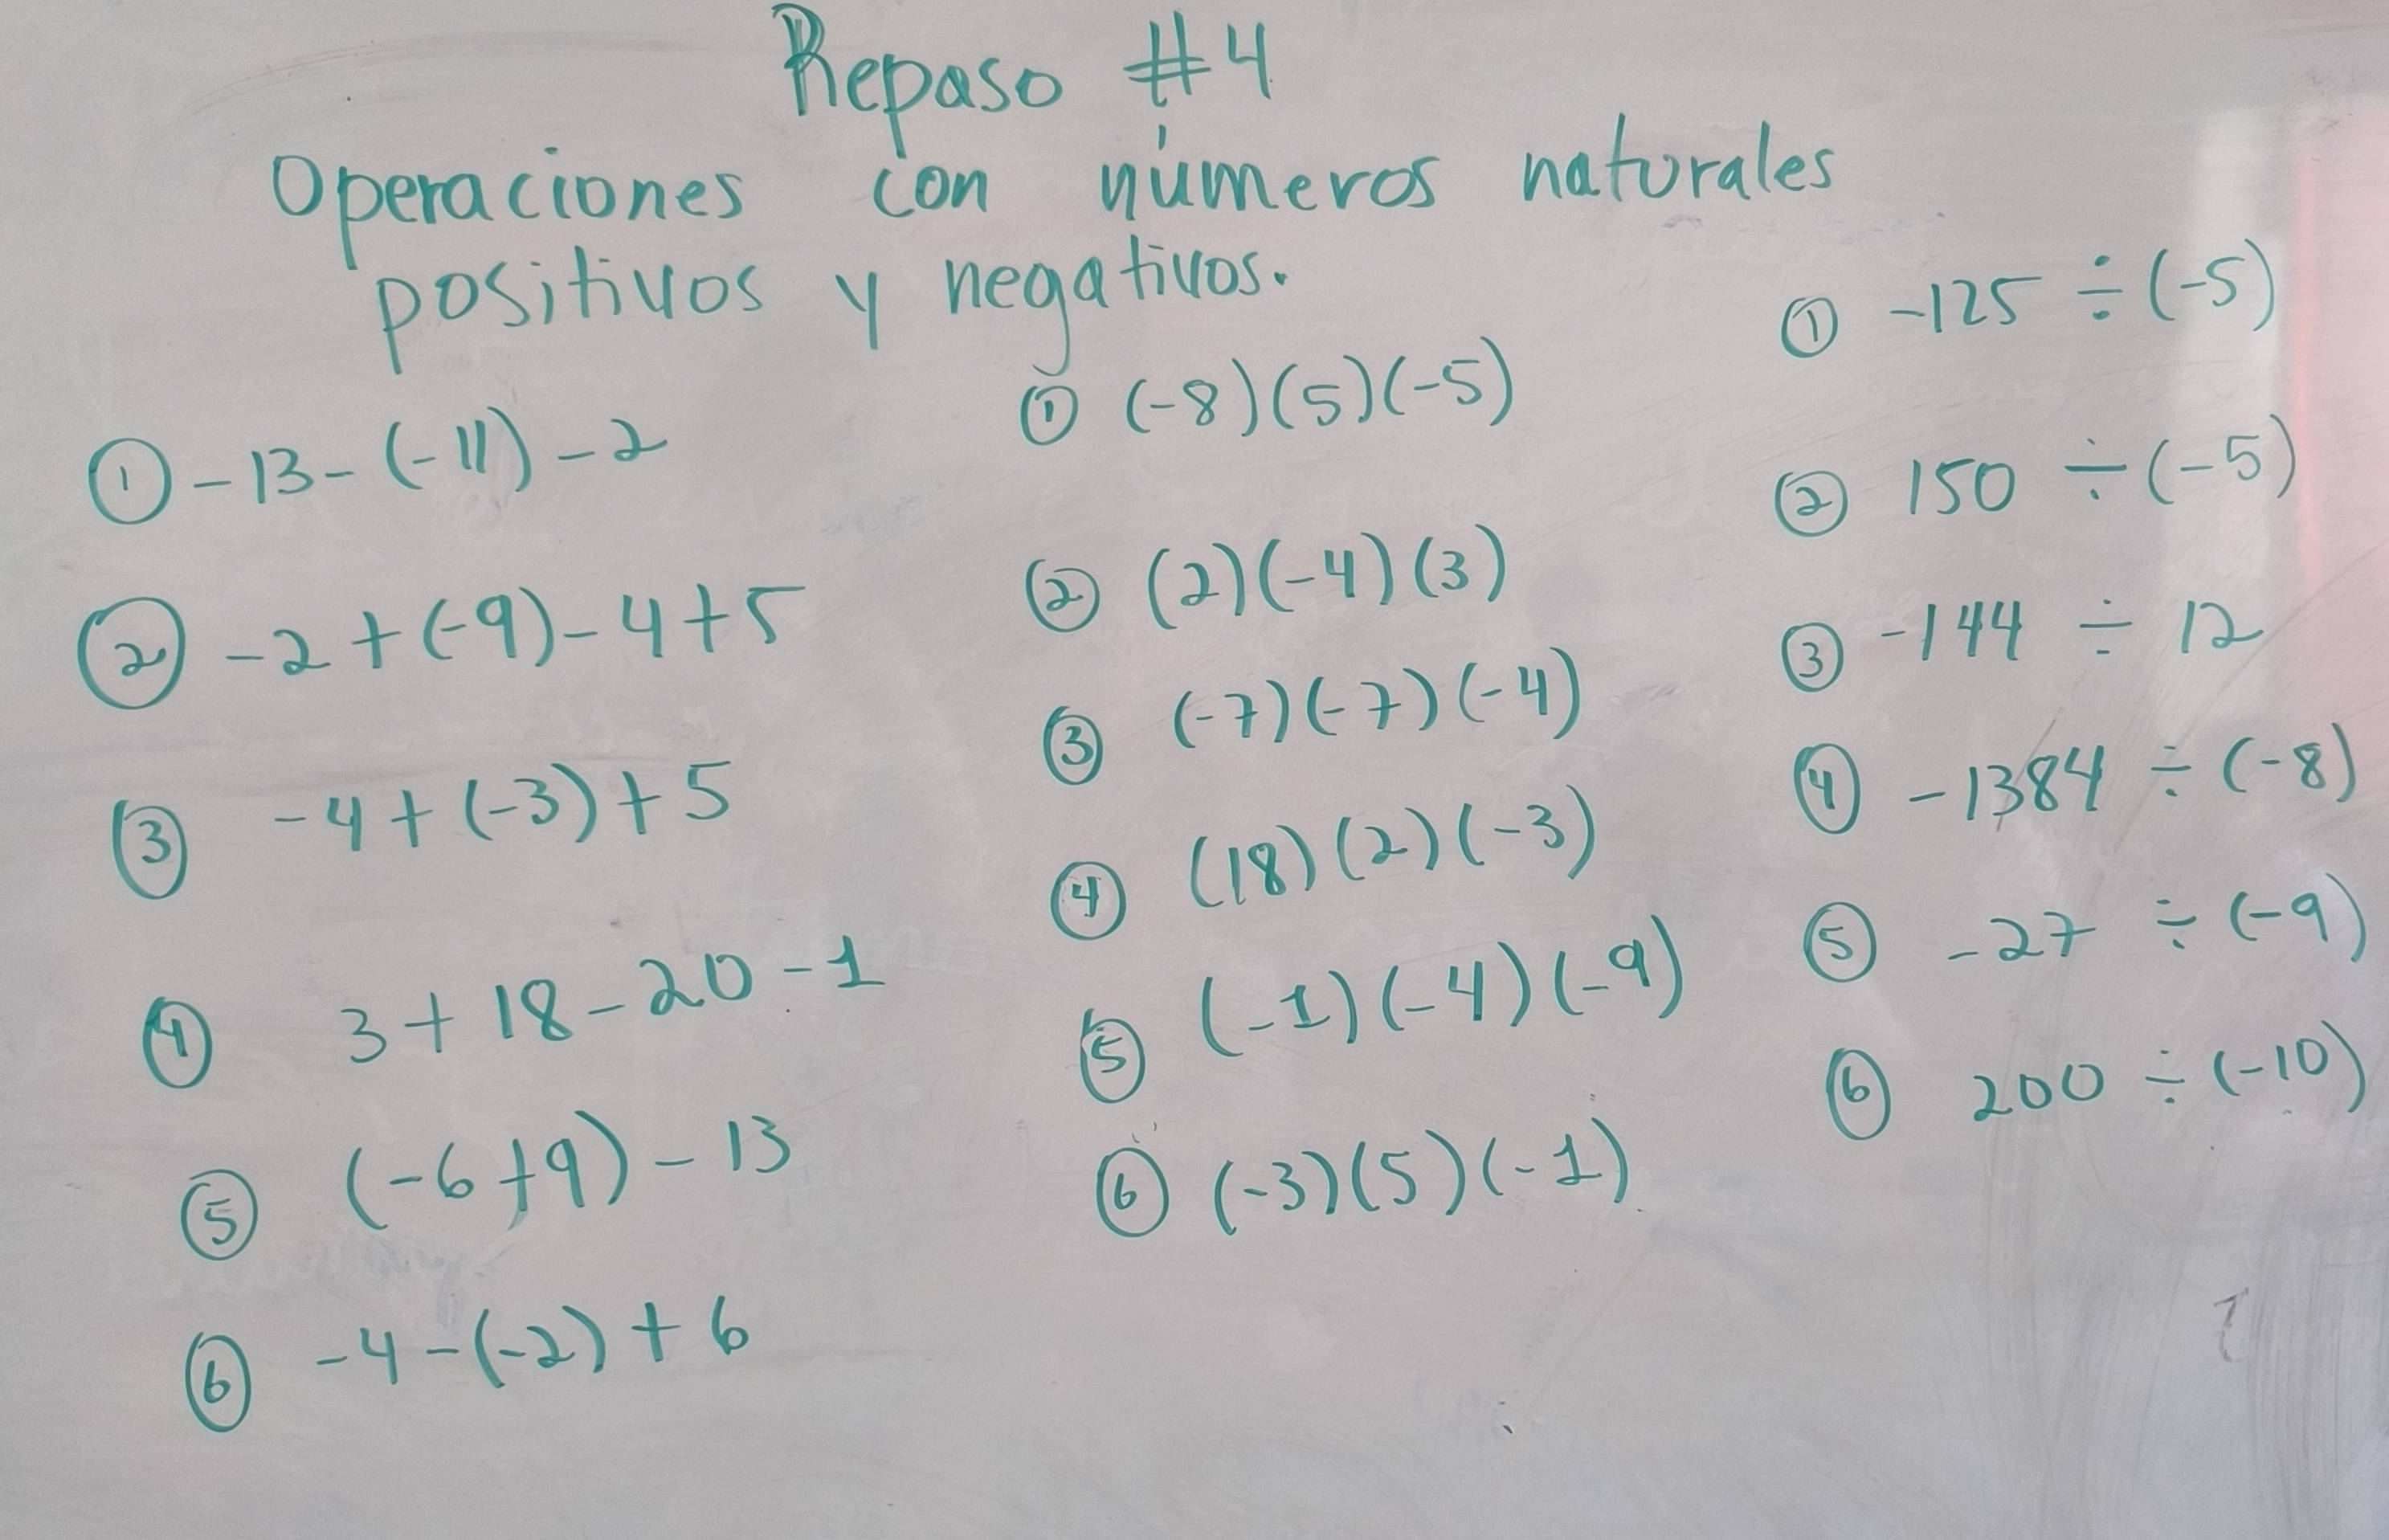 Repaso #4
Operaciones con números naturales
positivos y negativos.
① -13-(-11)-2
② -2+(-9)-4+5
③ -4+(-3)+5
④ 3+18-20-1
⑤ (-6+9)-13
⑥ -4-(-2)+6
① (-8)(5)(-5)
② (2)(-4)(3)
③ (-7)(-7)(-4)
④ (18)(2)(-3)
⑤ (-1)(-4)(-9)
⑥ (-3)(5)(-1)
① -125 ÷ (-5)
② 150 ÷ (-5)
③ -144 ÷ 12
④ -1384 ÷ (-8)
⑤ -27 ÷ (-9)
⑥ 200 ÷ (-10)